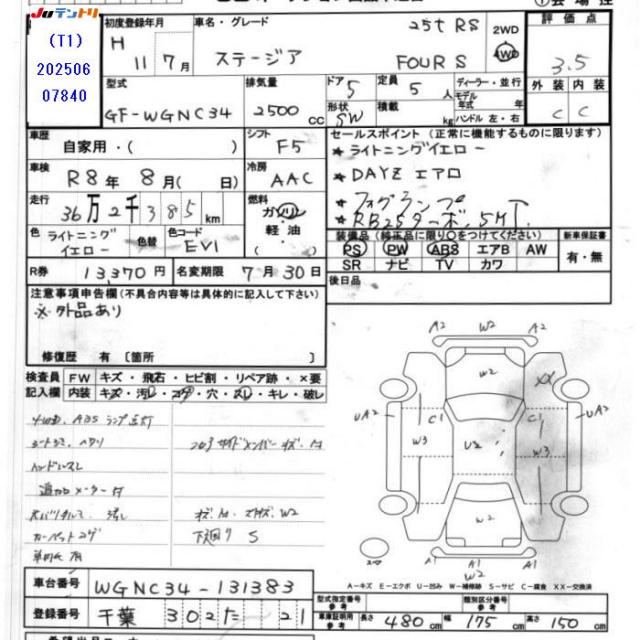 JUテントリ
(T1)
202506
07840
初度登録年月
H 11年7月
車名・グレード
ステージア
25t RS
FOUR S
2WD
4WD
評価点
3.5
型式
GF-WGNC34
排気量
2500cc
ドア 5
形状 SW
定員 5人
積載 kg
ディーラー・並行
モデル年式 年
ハンドル 左・右
外装 内装
C C
車歴
自家用・( )
シフト
F5
セールスポイント(正常に機能するものに限ります)
★ライトニングイエロー
★DAYZ エアロ
★フォグランプ
★RB25ターボ、5MT
車検
R8年8月(日)
冷房
AAC
走行
36万2千385km
燃料
ガソリン
軽油
( )
色
ライトニングイエロー
色替
色コード
EV1
装備品(純正品に限り○をつけてください)
PS PW ABS エアB AW
SR ナビ TV カワ
新車保証書
有・無
R券
13,370円
名変期限
7月30日
後日品
注意事項申告欄(不具合内容等は具体的に記入して下さい)
※外品あり
修復歴 有〔箇所 〕
検査員記入欄
FW キズ・飛石・ヒビ割・リペア跡・×要
内装 キズ・汚レ・コゲ・穴・スレ・キレ・破レ
4WD、ABSランプ点灯
シートシミ、ヘタリ
ハンドルスレ
追加メーター付
カーペットコゲ
下廻り S
A2 W2 A2
W2
XX
UA2 C1 C1 UA2
W3 U2 W3
W2
A1 A1
W2
A-キズ E-エクボ U-凹み W-補修跡 S-サビ C-腐食 XX-交換済
車台番号
WGNC34-131383
登録番号
千葉 302 た 21
型式指定番号
参考
類別区分番号
参考
車庫証明用
参考
長さ 480cm
幅 175cm
高さ 150cm